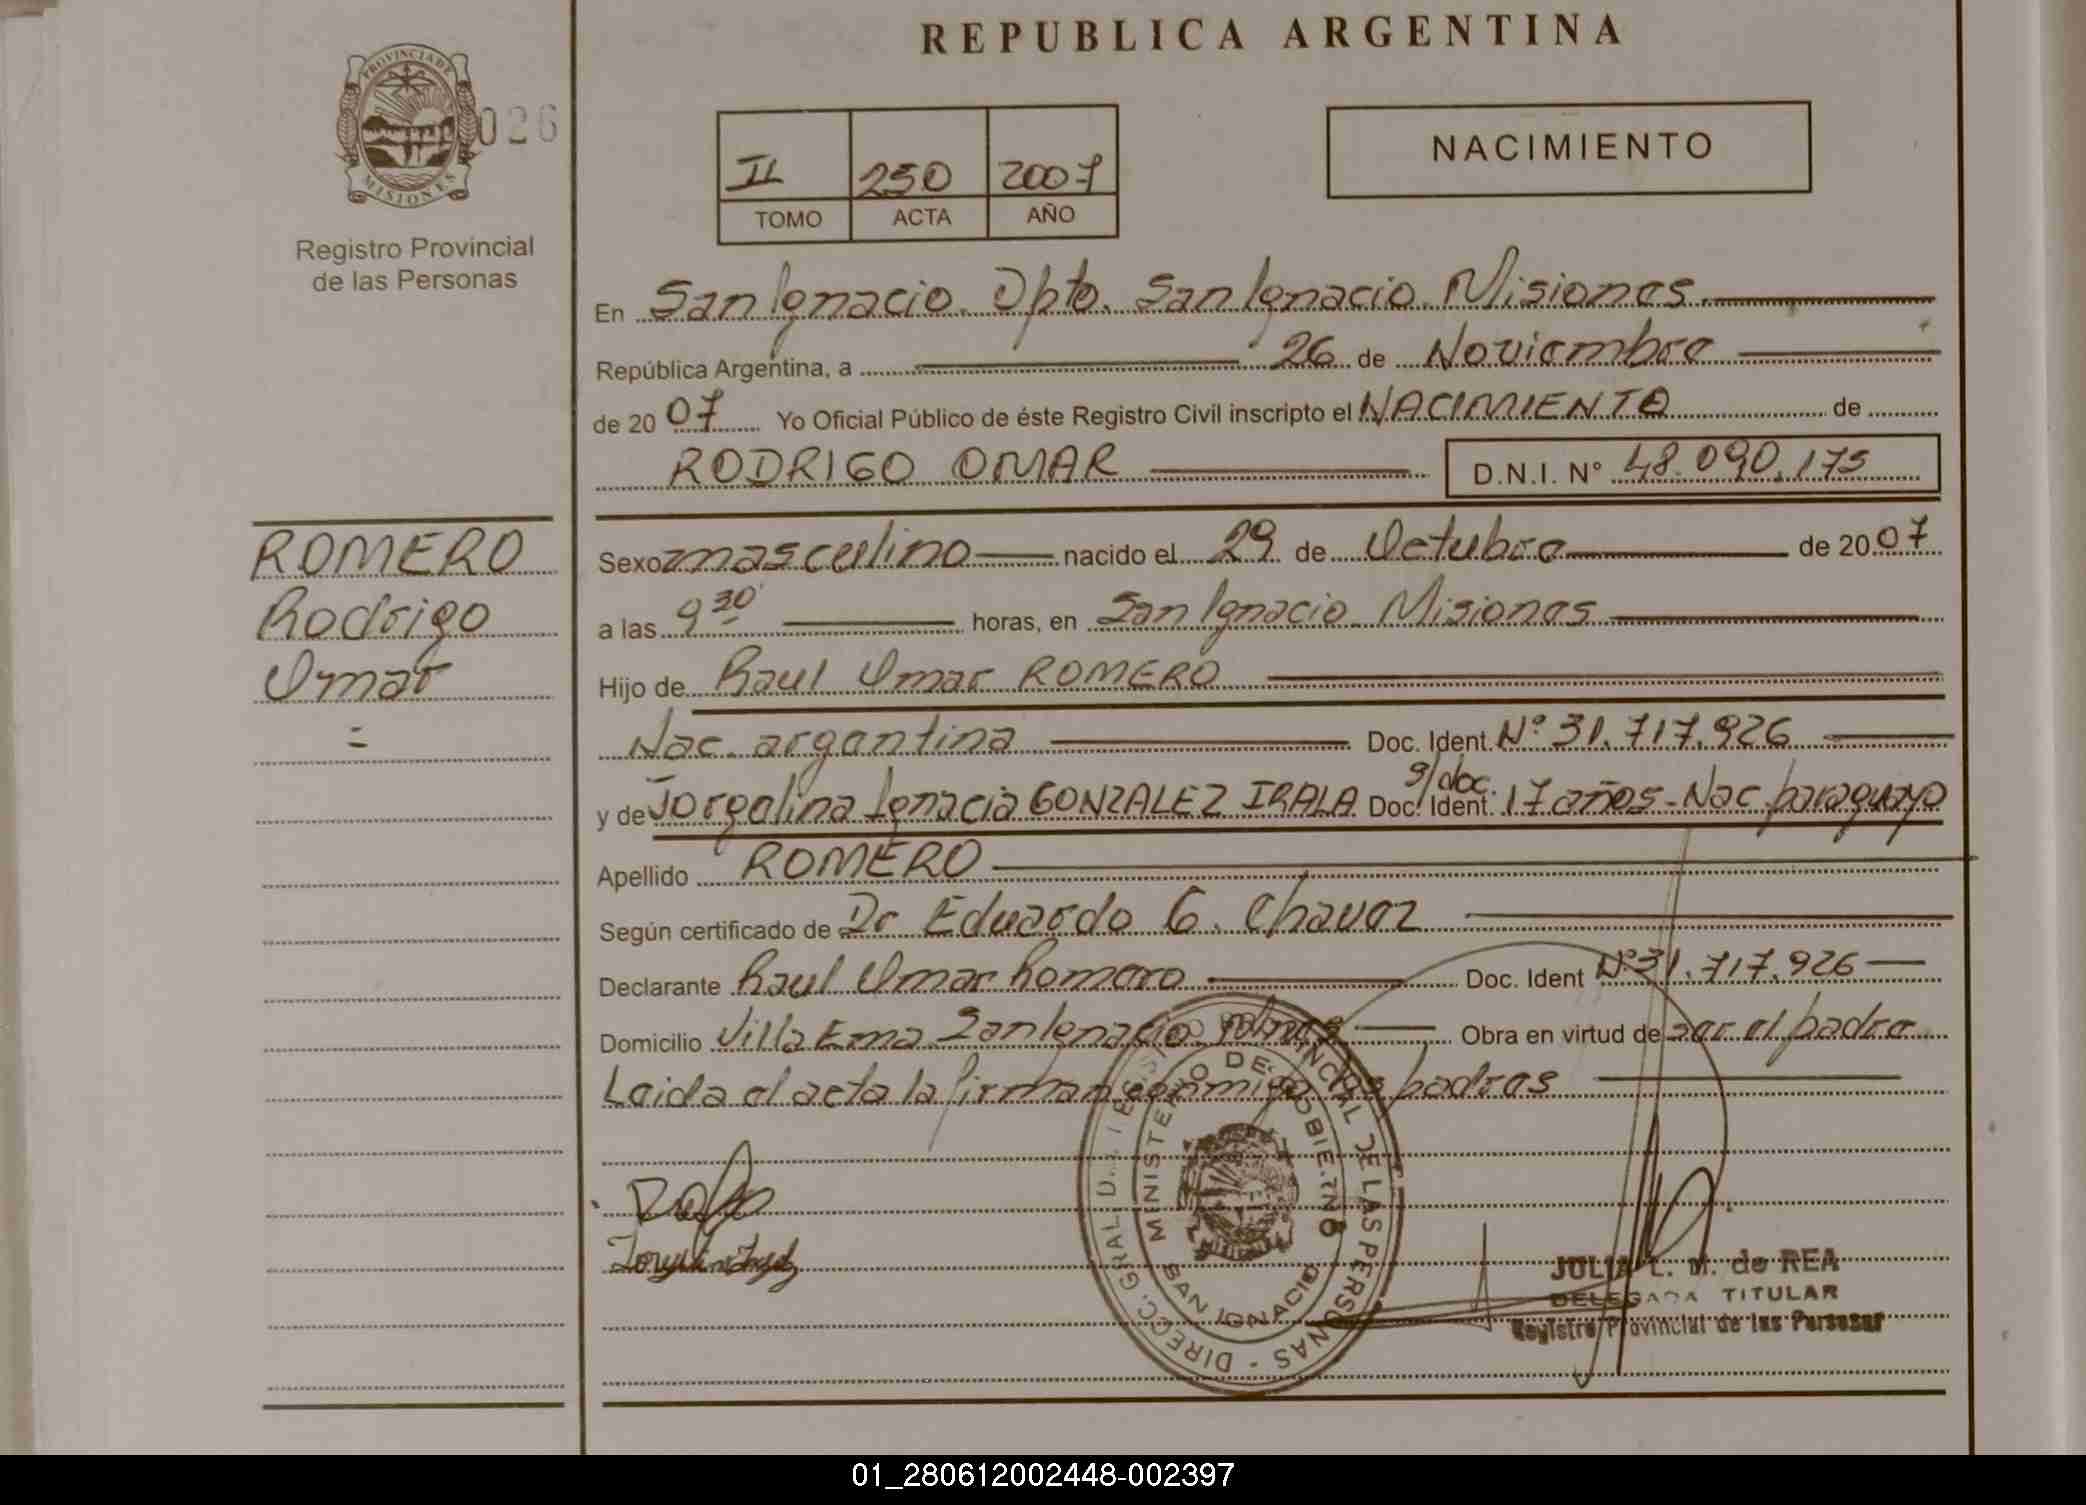 REPUBLICA ARGENTINA
PROVINCIA DE
MISIONES
026
Registro Provincial
de las Personas
II 250 2007
TOMO ACTA AÑO
NACIMIENTO
En San Ignacio. Dpto. San Ignacio. Misiones.
República Argentina, a 26 de Noviembre
de 2007 Yo Oficial Público de éste Registro Civil inscripto el NACIMIENTO de
RODRIGO OMAR D.N.I. N° 48.090.175
ROMERO
Rodrigo
Omar
=
Sexo masculino nacido el 29 de Octubre de 2007
a las 9 30 horas, en San Ignacio. Misiones
Hijo de Raul Omar ROMERO
Nac. argentina Doc. Ident. N° 31.717.926
s/doc.
y de Jorgelina Ignacia GONZALEZ IRALA Doc. Ident. 17 años - Nac paraguaya
Apellido ROMERO
Según certificado de Dr Eduardo G. Chavez
Declarante Raul Omar Romero Doc. Ident N° 31.717.926
Domicilio Villa Ema San Ignacio Mnes Obra en virtud de ser el padre
Leida el acta la firman conmigo los padres
MINISTERIO DE GOBIERNO
SAN IGNACIO
PROVINCIAL DE LAS PERSONAS - DIRECC. GRAL D
JULIA L. M. de REA
DELEGADA TITULAR
Registro Provincial de las Personas
01_280612002448-002397